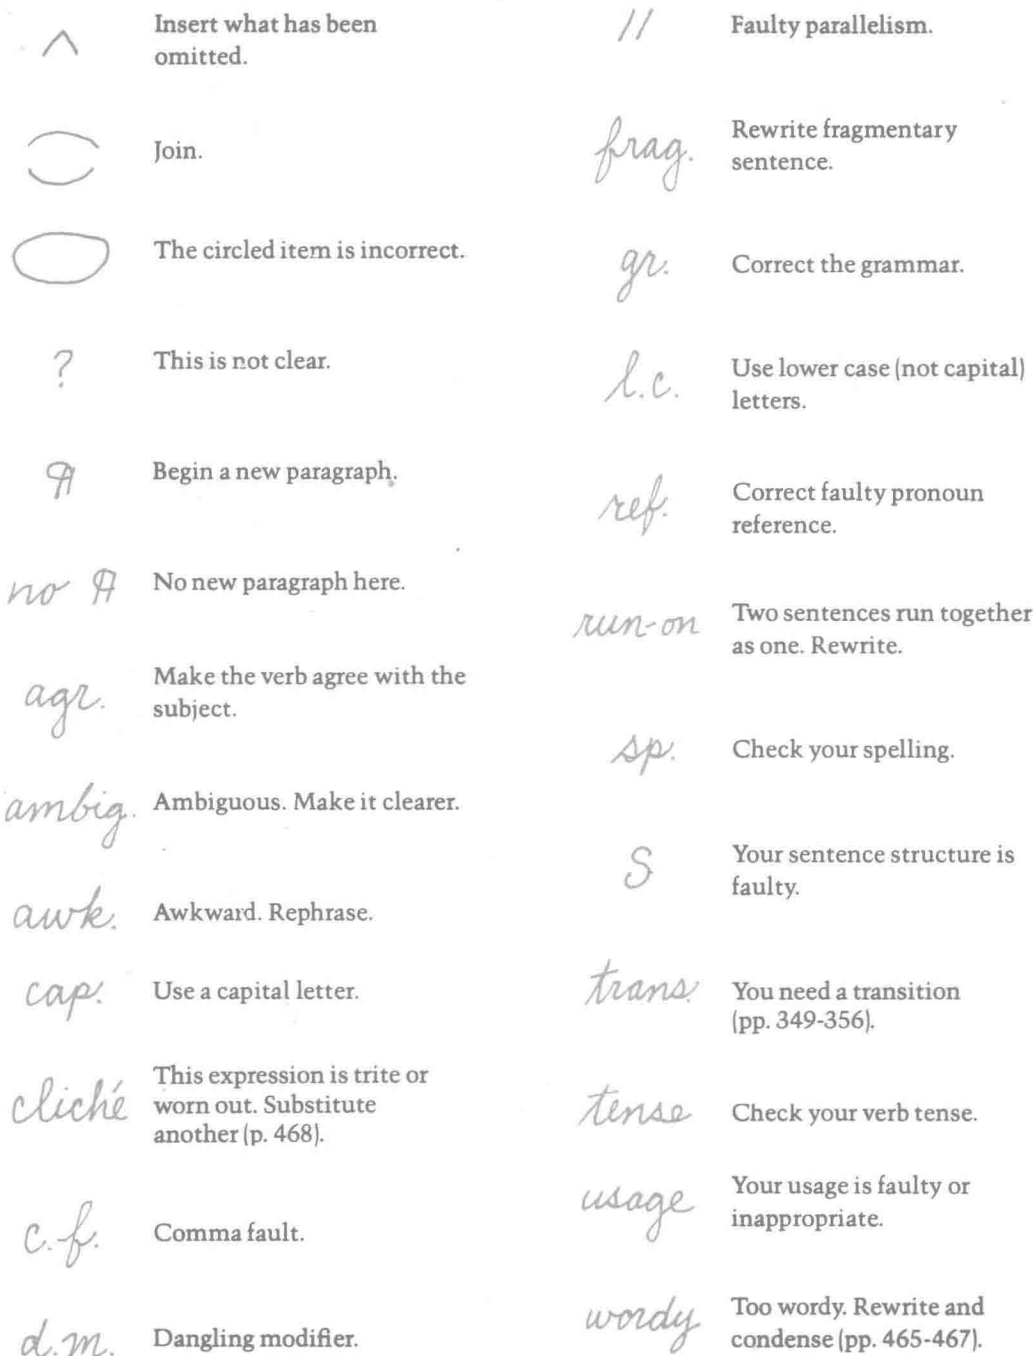 ^ Insert what has been
omitted.
Join.
The circled item is incorrect.
? This is not clear.
¶ Begin a new paragraph.
no ¶ No new paragraph here.
agr. Make the verb agree with the
subject.
ambig. Ambiguous. Make it clearer.
awk. Awkward. Rephrase.
cap. Use a capital letter.
cliché This expression is trite or
worn out. Substitute
another (p. 468).
c.f. Comma fault.
d.m. Dangling modifier.
// Faulty parallelism.
frag. Rewrite fragmentary
sentence.
gr. Correct the grammar.
l.c. Use lower case (not capital)
letters.
ref. Correct faulty pronoun
reference.
run-on Two sentences run together
as one. Rewrite.
sp. Check your spelling.
S Your sentence structure is
faulty.
trans. You need a transition
(pp. 349-356).
tense Check your verb tense.
usage Your usage is faulty or
inappropriate.
wordy Too wordy. Rewrite and
condense (pp. 465-467).